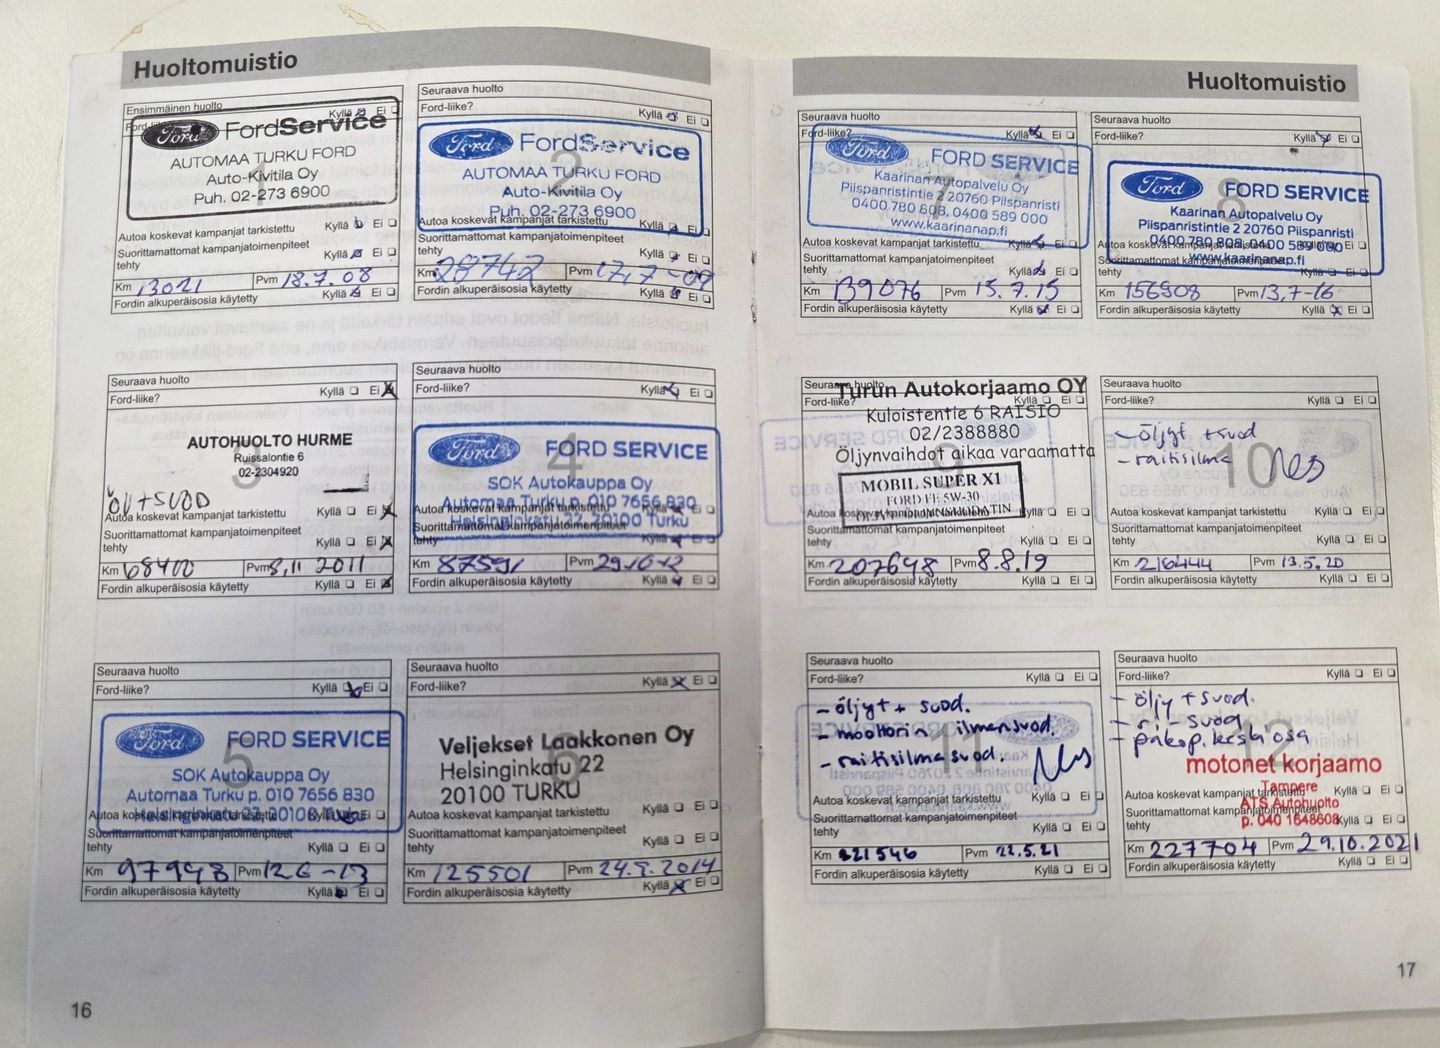 Huoltomuistio
Ensimmäinen huolto
Ford-liike? Kyllä Ei
Ford FordService
AUTOMAA TURKU FORD
Auto-Kivitila Oy
Puh. 02-273 6900
1
Autoa koskevat kampanjat tarkistettu Kyllä Ei
Suorittamattomat kampanjatoimenpiteet
tehty Kyllä Ei
Km 13021 Pvm 18.7.08
Fordin alkuperäisosia käytetty Kyllä Ei
Seuraava huolto
Ford-liike? Kyllä Ei
Ford FordService
AUTOMAA TURKU FORD
Auto-Kivitila Oy
Puh. 02-273 6900
2
Autoa koskevat kampanjat tarkistettu Kyllä Ei
Suorittamattomat kampanjatoimenpiteet
tehty
Km 28742 Pvm 17.7-09
Fordin alkuperäisosia käytetty Kyllä Ei
Seuraava huolto
Ford-liike? Kyllä Ei
AUTOHUOLTO HURME
Ruissalontie 6
02-2304920
3
Öljy + SUOD
Autoa koskevat kampanjat tarkistettu Kyllä Ei
Suorittamattomat kampanjatoimenpiteet
tehty Kyllä Ei
Km 68400 Pvm 8,11 2011
Fordin alkuperäisosia käytetty Kyllä Ei
Seuraava huolto
Ford-liike? Kyllä Ei
Ford FORD SERVICE
4
SOK Autokauppa Oy
Automaa Turku p. 010 7656 830
Helsinginkatu 22 20100 Turku
Autoa koskevat kampanjat tarkistettu Kyllä Ei
Suorittamattomat kampanjatoimenpiteet
tehty Kyllä Ei
Km 87591 Pvm 29.10-12
Fordin alkuperäisosia käytetty Kyllä Ei
Seuraava huolto
Ford-liike? Kyllä Ei
Ford FORD SERVICE
5
SOK Autokauppa Oy
Automaa Turku p. 010 7656 830
Helsinginkatu 22 20100 Turku
Autoa koskevat kampanjat tarkistettu Kyllä Ei
Suorittamattomat kampanjatoimenpiteet
tehty Kyllä Ei
Km 97948 Pvm 12.6-13
Fordin alkuperäisosia käytetty Kyllä Ei
Seuraava huolto
Ford-liike? Kyllä Ei
Veljekset Laakkonen Oy
Helsinginkatu 22
20100 TURKU
6
Autoa koskevat kampanjat tarkistettu Kyllä Ei
Suorittamattomat kampanjatoimenpiteet
tehty Kyllä Ei
Km 125501 Pvm 24.9.2014
Fordin alkuperäisosia käytetty Kyllä Ei
16
Huoltomuistio
Seuraava huolto
Ford-liike? Kyllä Ei
Ford FORD SERVICE
Kaarinan Autopalvelu Oy
Piispanristintie 2 20760 Piispanristi
0400 780 808, 0400 589 000
www.kaarinanap.fi
7
Autoa koskevat kampanjat tarkistettu Kyllä Ei
Suorittamattomat kampanjatoimenpiteet
tehty Kyllä Ei
Km 139076 Pvm 15.7.15
Fordin alkuperäisosia käytetty Kyllä Ei
Seuraava huolto
Ford-liike? Kyllä Ei
Ford FORD SERVICE
8
Kaarinan Autopalvelu Oy
Piispanristintie 2 20760 Piispanristi
0400 780 808, 0400 589 000
www.kaarinanap.fi
Autoa koskevat kampanjat tarkistettu Kyllä Ei
Suorittamattomat kampanjatoimenpiteet
tehty Kyllä Ei
Km 156908 Pvm 13.7-16
Fordin alkuperäisosia käytetty Kyllä Ei
Seuraava huolto
Ford-liike?
Turun Autokorjaamo OY
Kuloistentie 6 RAISIO
02/2388880
Öljynvaihdot aikaa varaamatta
9
MOBIL SUPER X1
FORD FE 5W-30
Autoa koskevat kampanjat tarkistettu Kyllä Ei
Suorittamattomat kampanjatoimenpiteet
tehty Kyllä Ei
Km 207698 Pvm 8.8.19
Fordin alkuperäisosia käytetty Kyllä Ei
Seuraava huolto
Ford-liike? Kyllä Ei
- öljyt + suod
- raitisilma
10
Autoa koskevat kampanjat tarkistettu Kyllä Ei
Suorittamattomat kampanjatoimenpiteet
tehty Kyllä Ei
Km 216444 Pvm 13.5.20
Fordin alkuperäisosia käytetty Kyllä Ei
Seuraava huolto
Ford-liike? Kyllä Ei
- öljyt + suod.
- moottorin ilmansuod.
- raitisilmasuod.
11
Autoa koskevat kampanjat tarkistettu Kyllä Ei
Suorittamattomat kampanjatoimenpiteet
tehty Kyllä Ei
Km 221546 Pvm 22.5.21
Fordin alkuperäisosia käytetty Kyllä Ei
Seuraava huolto
Ford-liike? Kyllä Ei
- öljy + suod.
- r.i-suod
- pakop. keskiosa
12
motonet korjaamo
Tampere
ATS Autohuolto
p. 040 1648608
Autoa koskevat kampanjat tarkistettu Kyllä Ei
Suorittamattomat kampanjatoimenpiteet
tehty Kyllä Ei
Km 227704 Pvm 29.10.2021
Fordin alkuperäisosia käytetty Kyllä Ei
17